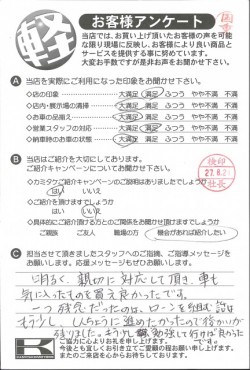 軽
お客様アンケート
当店では、お買い上げ頂いたお客様の声を可能
な限り現場に反映し、お客様により良い商品と
サービスを提供する事に努めています。
大変お手数ですが是非お声をお聞かせ下さい。
A 当店を実際にご利用になった印象をお聞かせ下さい。
◇店の印象 大満足 満足 ふつう やや不満 不満
◇店内・展示場の清掃 大満足 満足 ふつう やや不満 不満
◇お車の品揃え 大満足 満足 ふつう やや不満 不満
◇営業スタッフの対応 大満足 満足 ふつう やや不満 不満
◇納車時のお車の状態 大満足 満足 ふつう やや不満 不満
B 当店はご紹介を大切にしております。
ご紹介キャンペーンについてお聞かせ下さい
◇カミタケご紹介キャンペーンのご説明はありましたでしょうか
はい いいえ
◇ご紹介を頂けますでしょうか
はい いいえ
◇具体的にご紹介頂ける方とのご関係をお聞かせ頂けますでしょうか
ご親戚 ご友人 職場の方 機会があれば紹介したい
検印
27.8.2
社長
C 担当させて頂きましたスタッフへのご指摘、ご指導メッセージを
お願いします。応援メッセージもぜひお願いします。
明るく、親切に対応して頂き、車も
気に入ったものを買えて良かったです。
一つ残念だったのは、ローンを組む話は
もう少し
勉強して行けば良かった
です。
ご協力に心よりお礼を申し上げます。
今後とも宜しくお引き立てご愛顧の程お願い申し上げます。
またのご来店を心からお待ちしております。